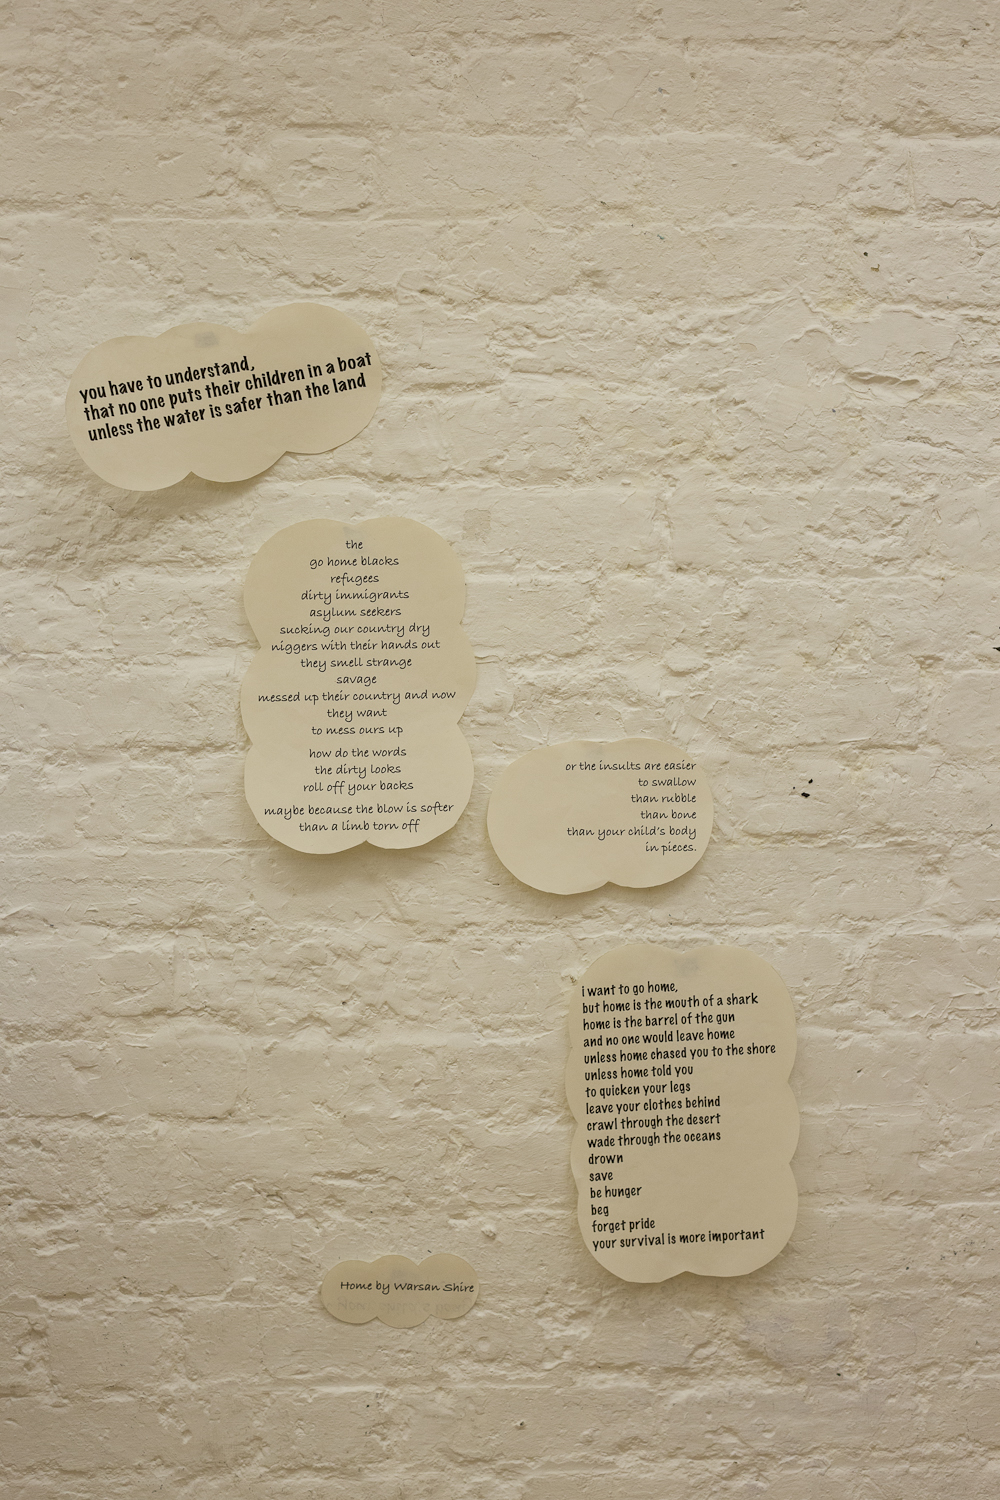 you have to understand,
that no one puts their children in a boat
unless the water is safer than the land
the
go home blacks
refugees
dirty immigrants
asylum seekers
sucking our country dry
niggers with their hands out
they smell strange
savage
messed up their country and now
they want
to mess ours up
how do the words
the dirty looks
roll off your backs
maybe because the blow is softer
than a limb torn off
or the insults are easier
to swallow
than rubble
than bone
than your child's body
in pieces.
i want to go home,
but home is the mouth of a shark
home is the barrel of the gun
and no one would leave home
unless home chased you to the shore
unless home told you
to quicken your legs
leave your clothes behind
crawl through the desert
wade through the oceans
drown
save
be hunger
beg
forget pride
your survival is more important
Home by Warsan Shire